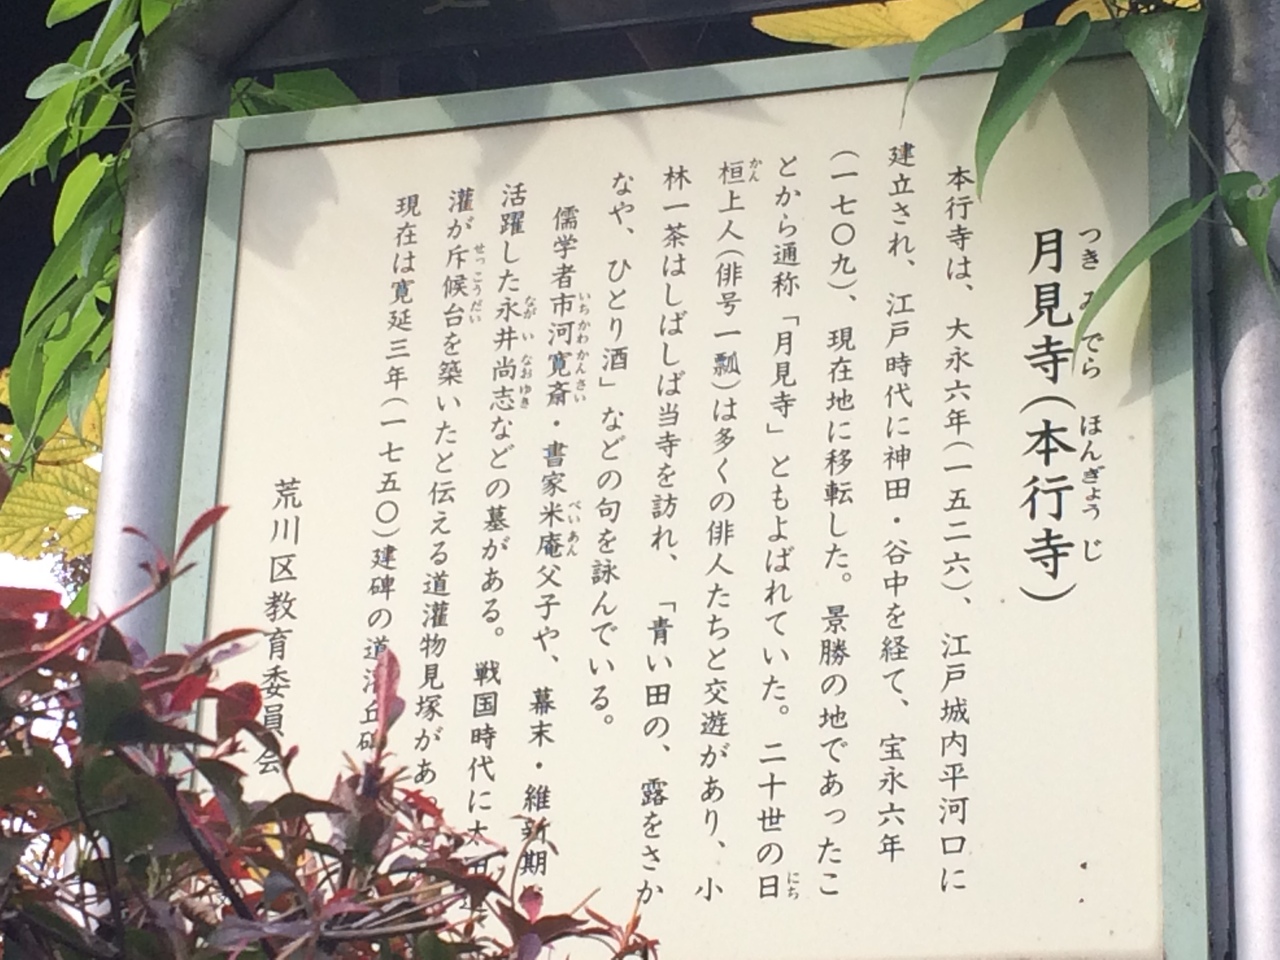 月見寺（本行寺）
つき でら ほんぎょうじ
本行寺は、大永六年（一五二六）、江戸城内平河口に
建立され、江戸時代に神田・谷中を経て、宝永六年
（一七〇九）、現在地に移転した。景勝の地であったこ
とから通称「月見寺」ともよばれていた。二十世の日
にち
桓上人（俳号一瓢）は多くの俳人たちと交遊があり、小
かん
林一茶はしばしば当寺を訪れ、「青い田の、露をさか
なや、ひとり酒」などの句を詠んでいる。
儒学者市河寛斎・書家米庵父子や、幕末・維新期
いちかわかんさい べいあん
活躍した永井尚志などの墓がある。戦国時代に
ながい なおゆき
灌が斥候台を築いたと伝える道灌物見塚があ
せっこうだい
現在は寛延三年（一七五〇）建碑の道灌丘碑
荒川区教育委員会